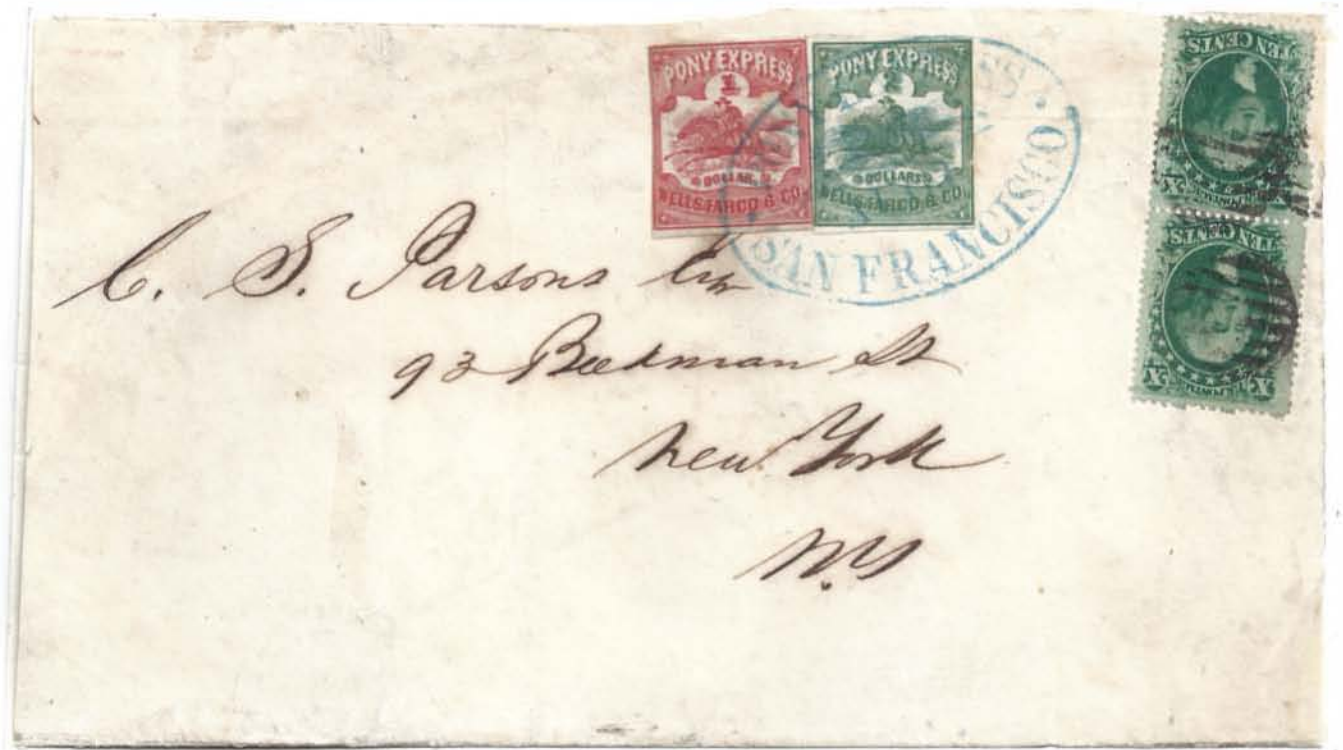 PONY EXPRESS
1
DOLLAR
WELLS FARGO & CO
PONY EXPRESS
DOLLARS
WELLS FARGO & CO
SAN FRANCISCO
TEN CENTS
X X
TEN CENTS
X X
C. S. Parsons Esqr
93 Beekman St
New York
N.Y